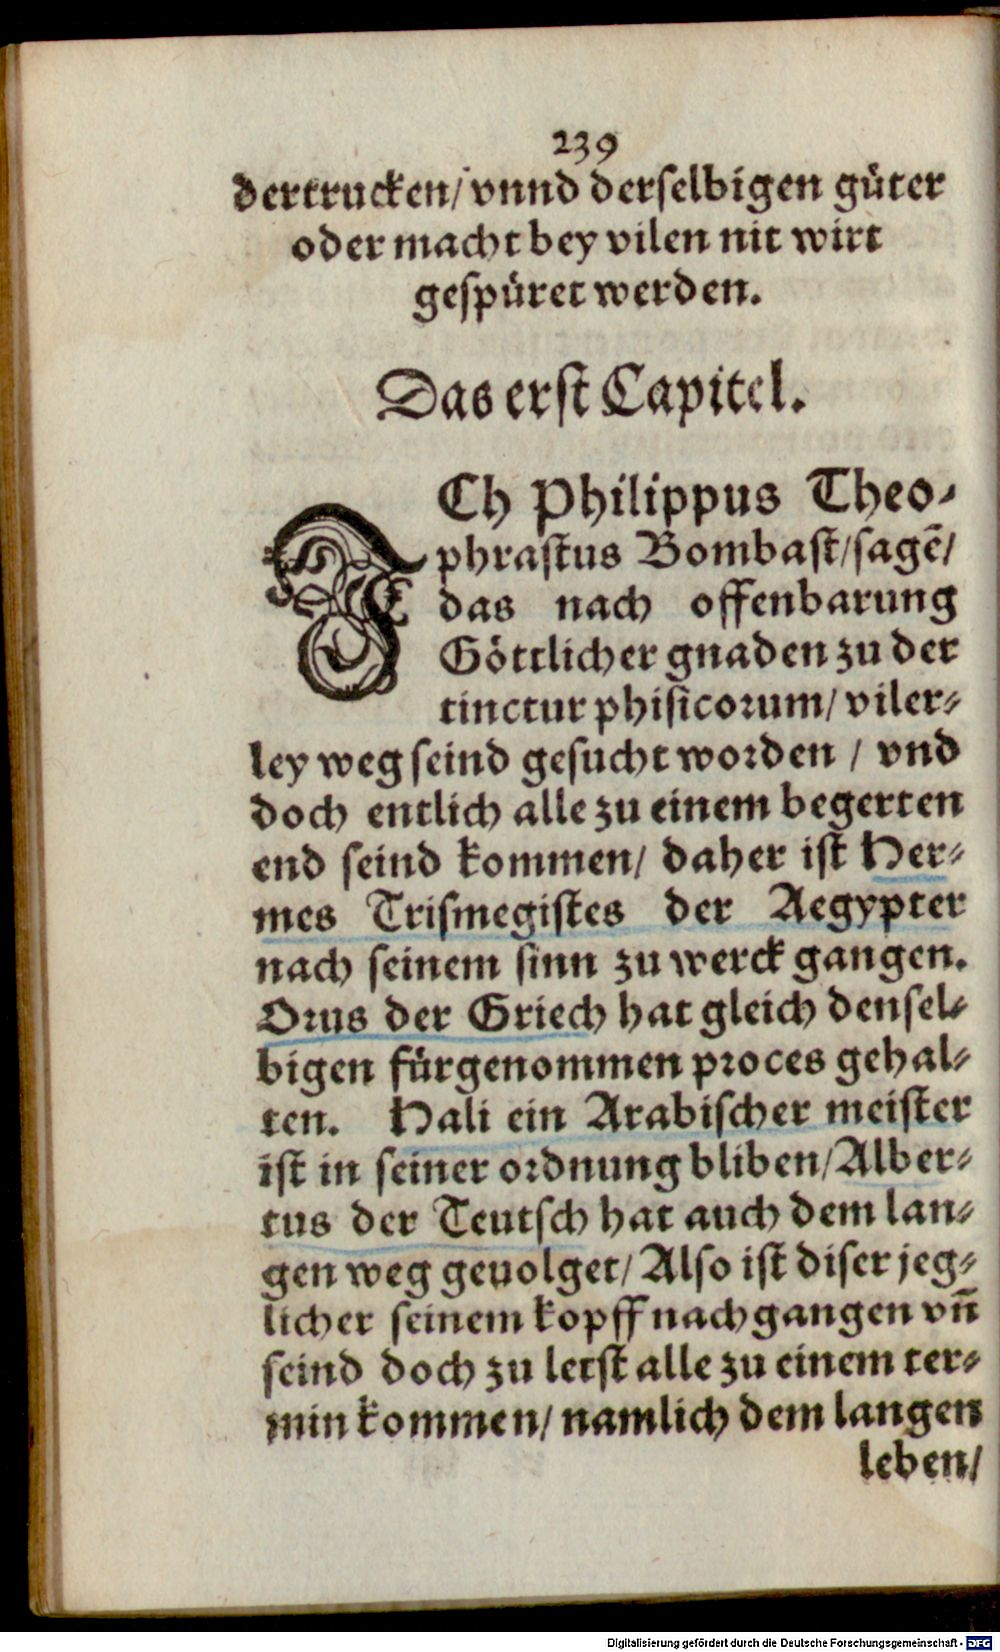 239
dertrucken/ vnnd derselbigen güter
oder macht bey vilen nit wirt
gespüret werden.
Das erst Capitel.
ICh Philippus Theo-
phrastus Bombast/sagẽ/
das nach offenbarung
Göttlicher gnaden zu der
tinctur phisicorum/ viler-
ley weg seind gesucht worden / vnd
doch entlich alle zu einem begerten
end seind kommen/ daher ist Her-
mes Trismegistes der Aegypter
nach seinem sinn zu werck gangen.
Orus der Griech hat gleich densel-
bigen fürgenommen proces gehal-
ten. Hali ein Arabischer meister
ist in seiner ordnung bliben/Alber-
tus der Teutsch hat auch dem lan-
gen weg geuolget/ Also ist diser jeg-
licher seinem kopff nach gangen vñ
seind doch zu letst alle zu einem ter-
min kommen/ namlich dem langen
leben/
Digitalisierung gefördert durch die Deutsche Forschungsgemeinschaft - DFG